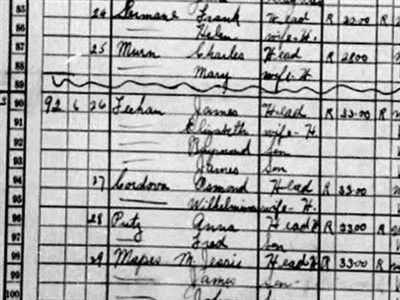 85 24 Frank Head R 22.00 R
86 Helen wife-H.
87 25 Murn Charles Head R 28.00
88 Mary wife-H
89
90 92 6 26 James Head R 33.00 R
91 Elizabeth wife-H
92 Raymond son
93 James son
94 27 Cordova Osmond Head R 33.00
95 Wilhelmina wife-H.
96 28 Putz Anna Head R 33.00 R
97 Fred son
98 29 Mapes M. Jessie Head R 33.00 R
99 James son
100